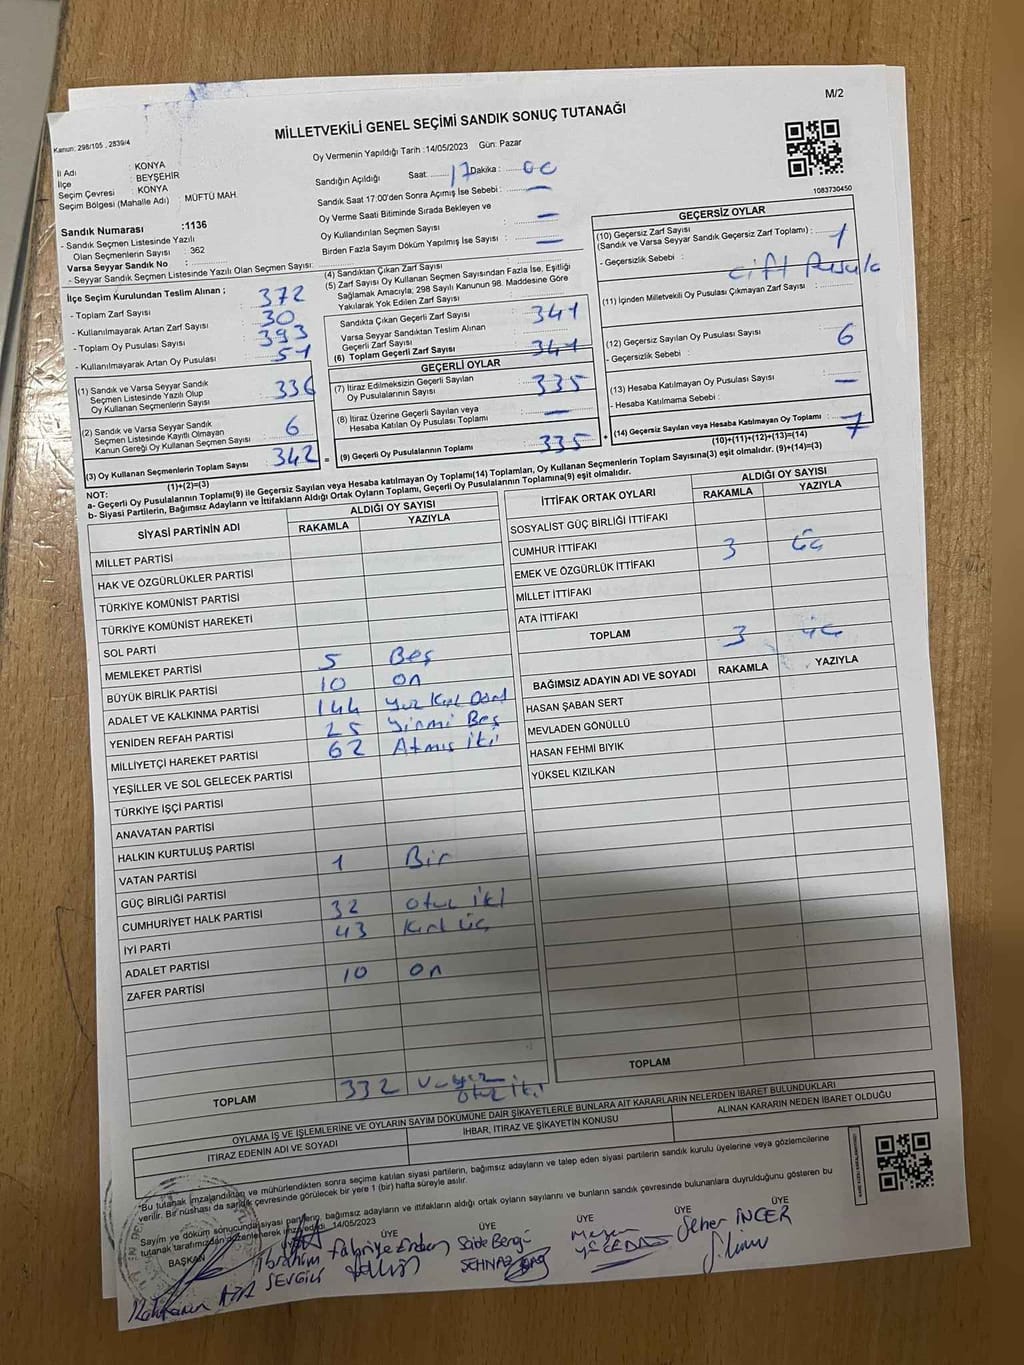 M/2
MİLLETVEKİLİ GENEL SEÇİMİ SANDIK SONUÇ TUTANAĞI
Kanun: 298/105 , 2839/4
İl Adı : KONYA
İlçe : BEYŞEHİR
Seçim Çevresi : KONYA
Seçim Bölgesi (Mahalle Adı) : MÜFTÜ MAH.
Sandık Numarası :1136
- Sandık Seçmen Listesinde Yazılı
Olan Seçmenlerin Sayısı : 362
Varsa Seyyar Sandık No :
- Seyyar Sandık Seçmen Listesinde Yazılı Olan Seçmen Sayısı:
İlçe Seçim Kurulundan Teslim Alınan ;
- Toplam Zarf Sayısı : 372
- Kullanılmayarak Artan Zarf Sayısı : 30
- Toplam Oy Pusulası Sayısı : 393
- Kullanılmayarak Artan Oy Pusulası : 51
(1) Sandık ve Varsa Seyyar Sandık
Seçmen Listesinde Yazılı Olup
Oy Kullanan Seçmenlerin Sayısı : 336
(2) Sandık ve Varsa Seyyar Sandık
Seçmen Listesinde Kayıtlı Olmayan
Kanun Gereği Oy Kullanan Seçmen Sayısı : 6
(3) Oy Kullanan Seçmenlerin Toplam Sayısı : 342
(1)+(2)=(3)
Oy Vermenin Yapıldığı Tarih :14/05/2023 Gün: Pazar
Sandığın Açıldığı Saat: 17 Dakika : 00
Sandık Saat 17:00'den Sonra Açımış İse Sebebi : —
Oy Verme Saati Bitiminde Sırada Bekleyen ve
Oy Kullandırılan Seçmen Sayısı : —
Birden Fazla Sayım Döküm Yapılmış İse Sayısı : —
(4) Sandıktan Çıkan Zarf Sayısı
(5) Zarf Sayısı Oy Kullanan Seçmen Sayısından Fazla İse, Eşitliği
Sağlamak Amacıyla, 298 Sayılı Kanunun 98. Maddesine Göre
Yakılarak Yok Edilen Zarf Sayısı
Sandıkta Çıkan Geçerli Zarf Sayısı : 341
Varsa Seyyar Sandıktan Teslim Alınan
Geçerli Zarf Sayısı
(6) Toplam Geçerli Zarf Sayısı : 341
GEÇERLİ OYLAR
(7) İtiraz Edilmeksizin Geçerli Sayılan
Oy Pusulalarının Sayısı : 335
(8) İtiraz Üzerine Geçerli Sayılan veya
Hesaba Katılan Oy Pusulası Toplamı : —
(9) Geçerli Oy Pusulalarının Toplamı : 335
1083730450
GEÇERSİZ OYLAR
(10) Geçersiz Zarf Sayısı
(Sandık ve Varsa Seyyar Sandık Geçersiz Zarf Toplamı) : 1
- Geçersizlik Sebebi : çift Pusula
(11) İçinden Milletvekili Oy Pusulası Çıkmayan Zarf Sayısı :
(12) Geçersiz Sayılan Oy Pusulası Sayısı : 6
- Geçersizlik Sebebi :
(13) Hesaba Katılmayan Oy Pusulası Sayısı : —
- Hesaba Katılmama Sebebi :
(14) Geçersiz Sayılan veya Hesaba Katılmayan Oy Toplamı : 7
(10)+(11)+(12)+(13)=(14)
NOT:
a- Geçerli Oy Pusulalarının Toplamı(9) ile Geçersiz Sayılan veya Hesaba Katılmayan Oy Toplamı(14) Toplamları, Oy Kullanan Seçmenlerin Toplam Sayısına(3) eşit olmalıdır. (9)+(14)=(3)
b- Siyasi Partilerin, Bağımsız Adayların ve İttifakların Aldığı Ortak Oyların Toplamı, Geçerli Oy Pusulalarının Toplamına(9) eşit olmalıdır.
SİYASİ PARTİNİN ADI ALDIĞI OY SAYISI
RAKAMLA YAZIYLA
MİLLET PARTİSİ
HAK VE ÖZGÜRLÜKLER PARTİSİ
TÜRKİYE KOMÜNİST PARTİSİ
TÜRKİYE KOMÜNİST HAREKETİ
SOL PARTİ
MEMLEKET PARTİSİ 5 Beş
BÜYÜK BİRLİK PARTİSİ 10 on
ADALET VE KALKINMA PARTİSİ 144 Yüz Kırk Dört
YENİDEN REFAH PARTİSİ 25 Yirmi Beş
MİLLİYETÇİ HAREKET PARTİSİ 62 Atmış iki
YEŞİLLER VE SOL GELECEK PARTİSİ
TÜRKİYE İŞÇİ PARTİSİ
ANAVATAN PARTİSİ
HALKIN KURTULUŞ PARTİSİ
VATAN PARTİSİ 1 Bir
GÜÇ BİRLİĞİ PARTİSİ
CUMHURİYET HALK PARTİSİ 32 otuz iki
İYİ PARTİ 43 Kırk üç
ADALET PARTİSİ
ZAFER PARTİSİ 10 on
TOPLAM 332 otuz iki
İTTİFAK ORTAK OYLARI ALDIĞI OY SAYISI
RAKAMLA YAZIYLA
SOSYALİST GÜÇ BİRLİĞİ İTTİFAKI
CUMHUR İTTİFAKI 3 üç
EMEK VE ÖZGÜRLÜK İTTİFAKI
MİLLET İTTİFAKI
ATA İTTİFAKI
TOPLAM 3 üç
BAĞIMSIZ ADAYIN ADI VE SOYADI RAKAMLA YAZIYLA
HASAN ŞABAN SERT
MEVLADEN GÖNÜLLÜ
HASAN FEHMİ BIYIK
YÜKSEL KIZILKAN
TOPLAM
OYLAMA İŞ VE İŞLEMLERİNE VE OYLARIN SAYIM DÖKÜMÜNE DAİR ŞİKAYETLERLE BUNLARA AİT KARARLARIN NELERDEN İBARET BULUNDUKLARI
İTİRAZ EDENİN ADI VE SOYADI İHBAR, İTİRAZ VE ŞİKAYETİN KONUSU ALINAN KARARIN NEDEN İBARET OLDUĞU
*Bu tutanak imzalandıktan ve mühürlendikten sonra seçime katılan siyasi partilerin, bağımsız adayların ve talep eden siyasi partilerin sandık kurulu üyelerine veya gözlemcilerine
verilir. Bir nüshası da sandık çevresinde görülecek bir yere 1 (bir) hafta süreyle asılır.
Sayım ve döküm sonucunda siyasi partilerin, bağımsız adayların ve ittifakların aldığı ortak oyların sayılarını ve bunların sandık çevresinde bulunanlara duyrulduğunu gösteren bu
tutanak tarafımızdan düzenlenerek imza edildi. 14/05/2023
BAŞKAN ÜYE ÜYE ÜYE ÜYE
İbrahim SEVGİLİ
Fahriye Erden
Saide Bengü
Meryem
Seher İNCER